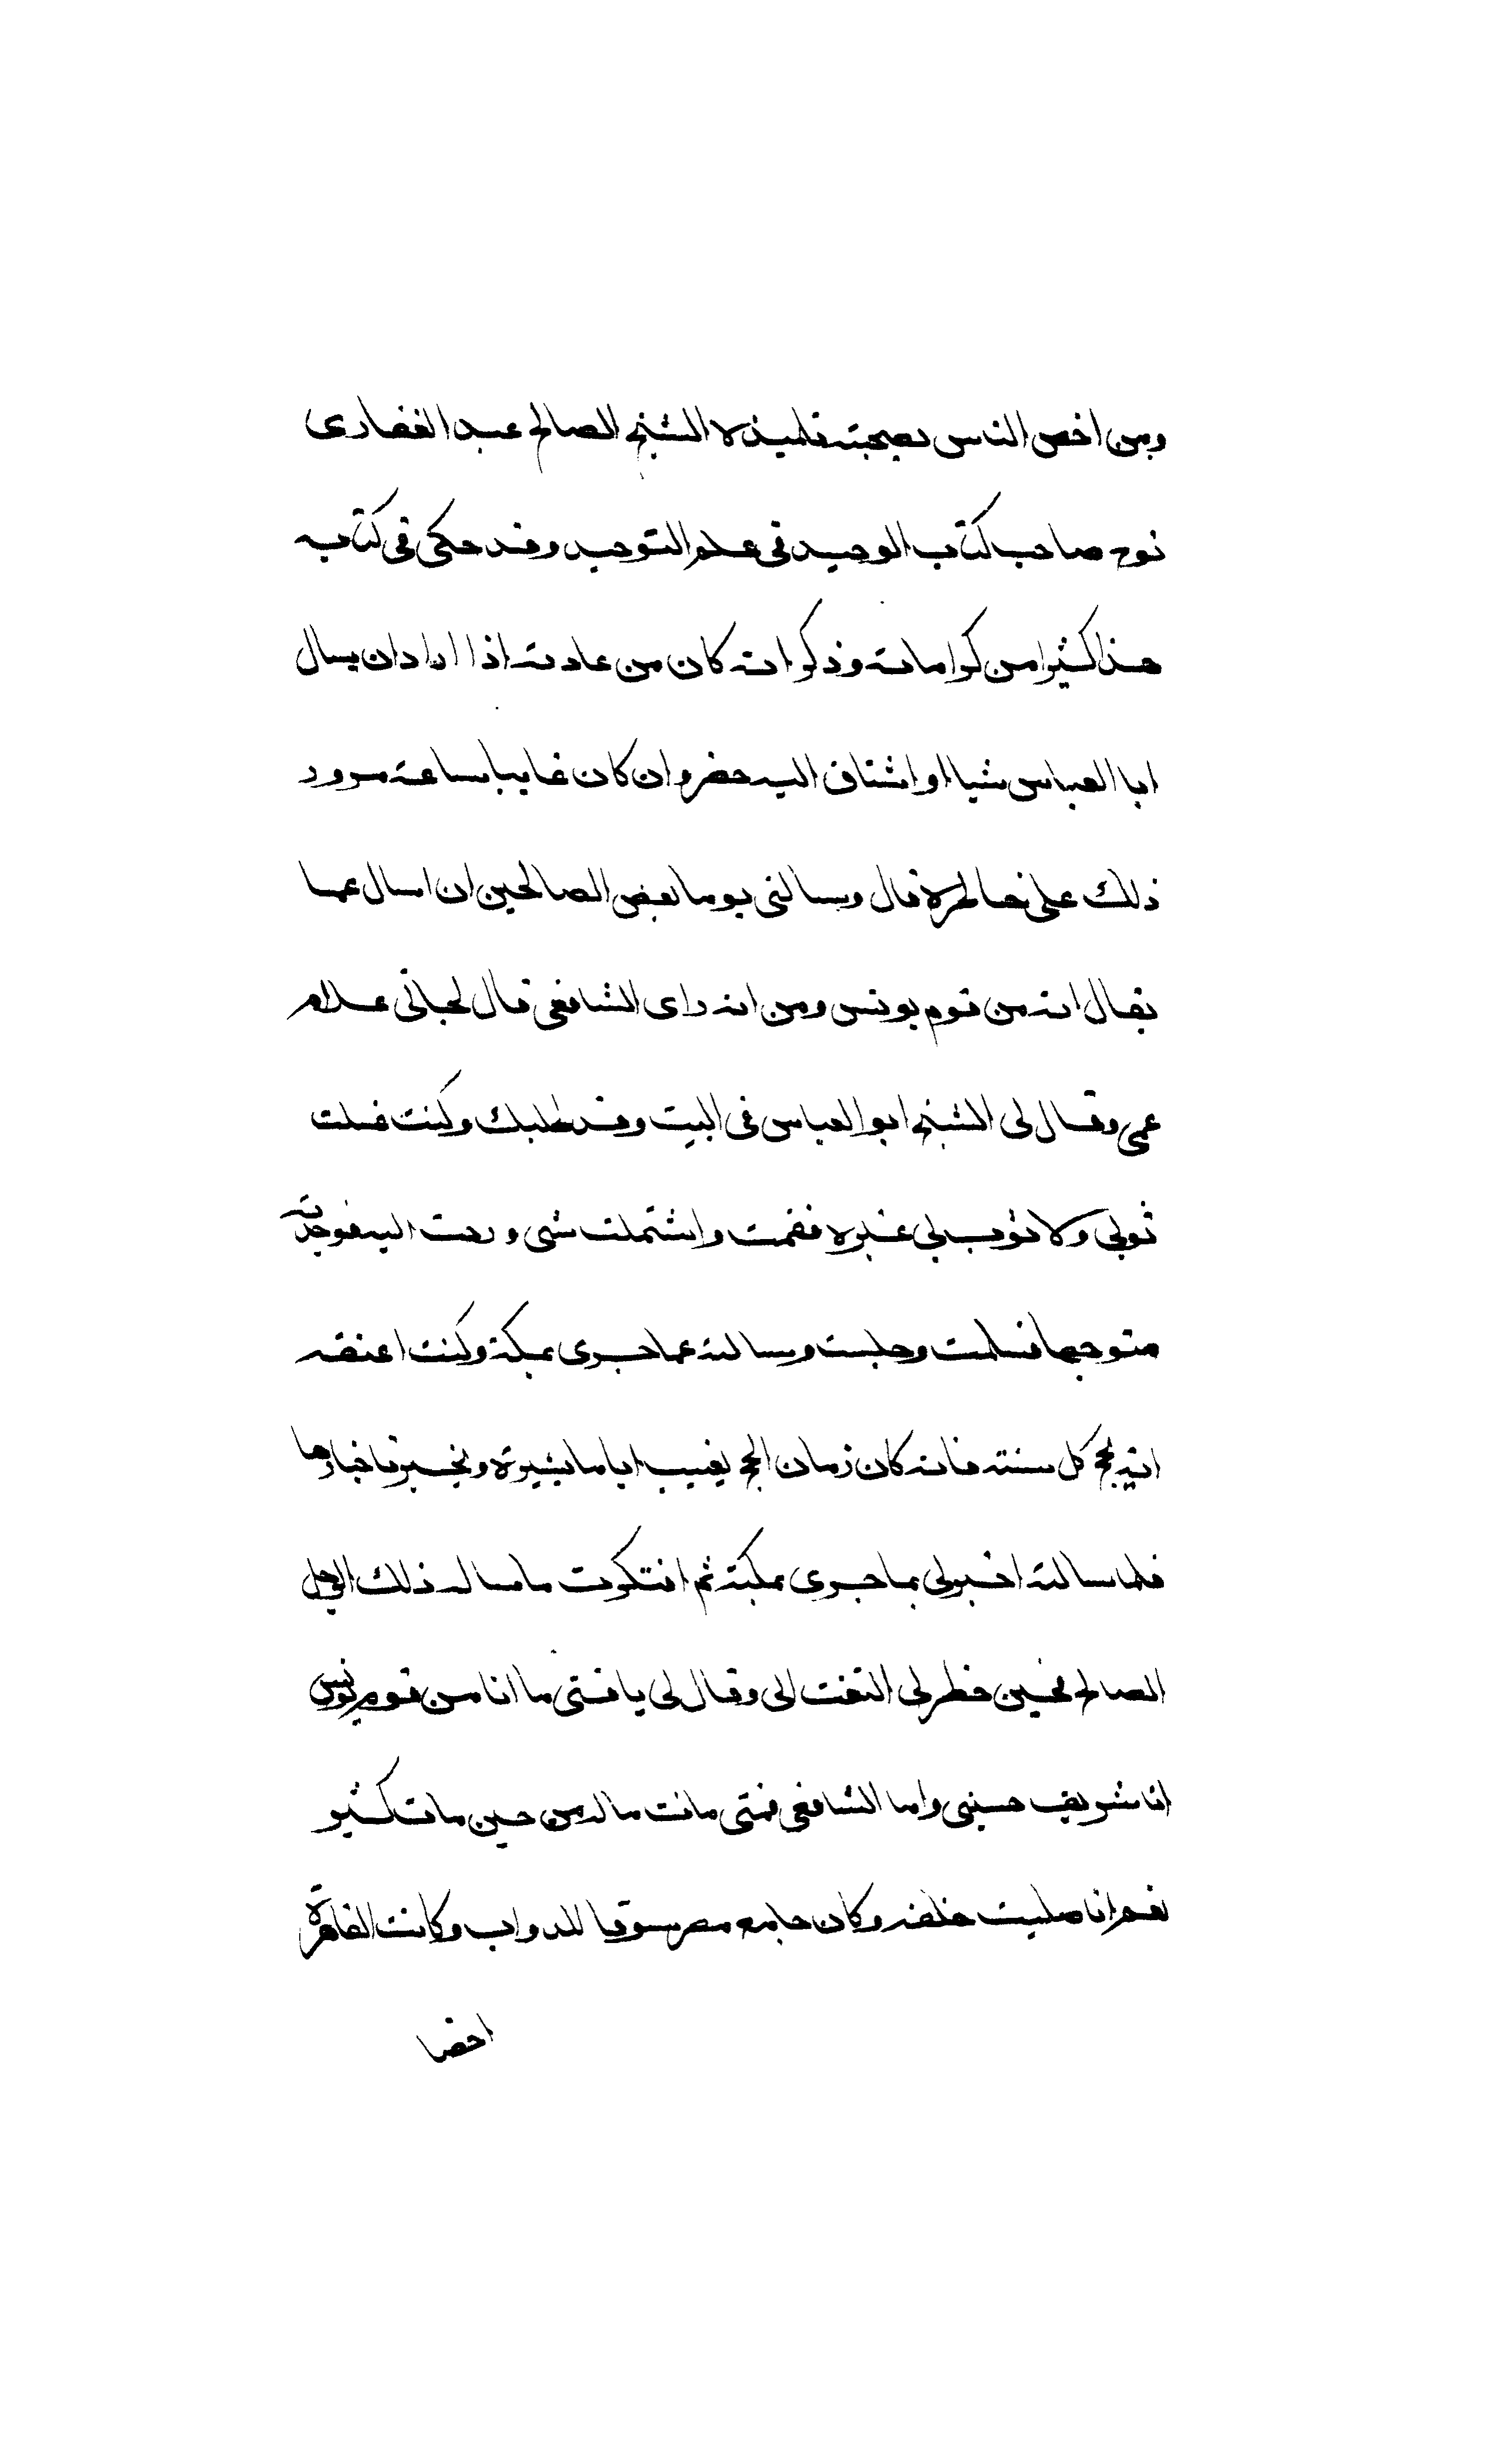 ومن اخص الناس بصحبته تلميذه الشيخ الصالح عبد الغفار بن
نوح صاحب كتاب الوحيد في علم التوحيد وقد حكى في كتابه
هذا كثيرا من كراماته وذكر انه كان من عادته اذا اراد ان يسال
ابا العباس شيا او اشتاق اليه حضر وان كان غايبا ساعة مرور
ذلك على خاطره قال وسالني يوما بعض الصالحين ان اسال عما
يقال انه من قوم يونس ومن انه راى الشافعي قال فجاني غلام
عمي وقال لي الشيخ ابو العباس في البيت وقد طلبك وكنت غسلت
ثوبي ولا ثوب لي غيره فقمت واشتملت شي ورحت اليه فوجدته
متوجها فسلمت وجلست وسالته عما جرى بمكة وكنت اعتقد
انه يحج كل سنة فانه كان زمان الحج يغيب اياما يسيرة ويخبر باخبارها
فلما سالته اخبرني بما جرى بمكة ثم افتكرت ما ساله ذلك الرجل
الصالح فحين خطر لي التفت الي وقال لي يا فتى ما انا من قوم يونس
انا شريف حسيني واما الشافعي فمتى مات ما له من حين مات كثير
نعم انا صليت خلفه وكان جامع مصر سوقا للدواب وكانت القاهرة
اخصا